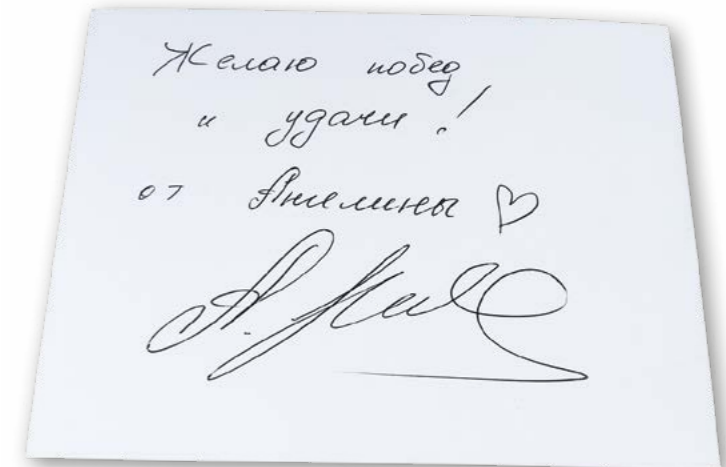 Желаю побед
и удачи!
от Анжелины ♡
А.